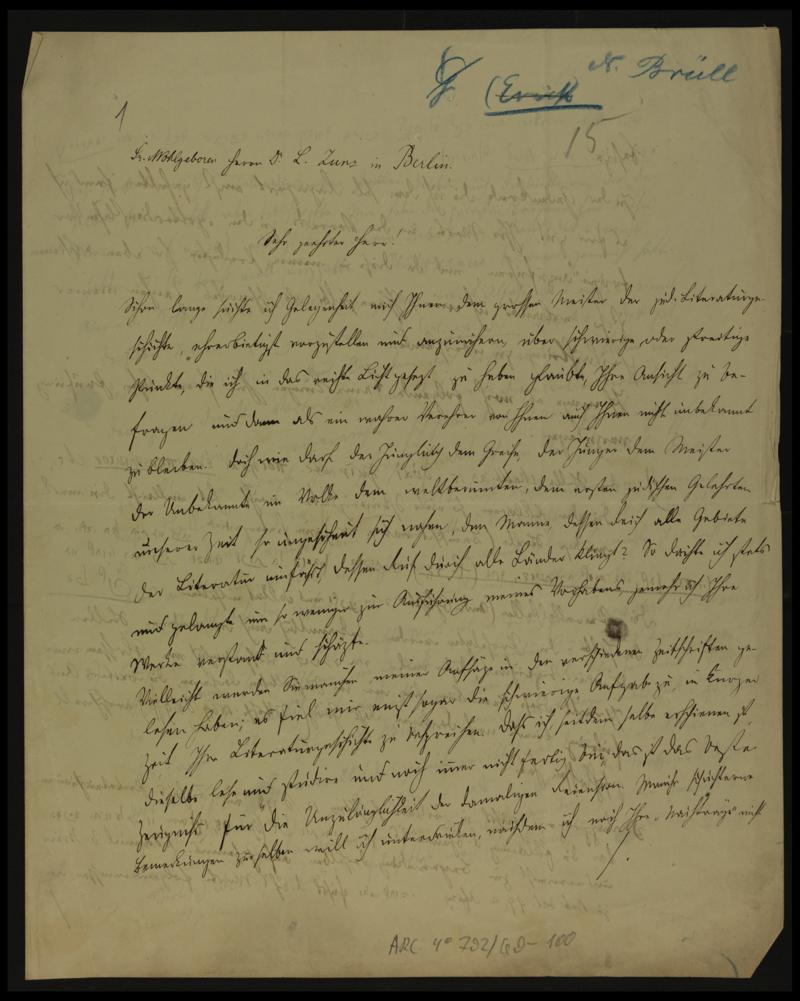 N. Brüll
(Erich)
15
1
Sr. Wohlgeboren Herrn D. L. Zunz in Berlin.
Sehr geehrter Herr!
Schon lange suchte ich Gelegenheit mich Ihnen, dem grossen Meister der jüd. Literaturge-
schichte, ehrerbietigst vorzustellen und anzunähern, über schwierige oder streitige
Punkte, die ich in das rechte Licht gesezt zu haben glaubte, Ihre Ansicht zu be-
fragen und dann als ein wahrer Verehrer von Ihnen auch Ihnen nicht unbekannt
zu bleiben. Doch wie darf der Jüngling dem Greise, der Jünger dem Meister
der Unbekannte im Volke dem weltberümten, dem ersten jüdischen Gelehrten
unserer Zeit so ungescheut sich nahen, dem Manne, dessen Geist alle Gebiete
der Literatur umfasst, dessen Ruf durch alle Länder klingt? So dachte ich stets
und gelangte um so weniger zur Ausführung meines Vorhabens, jemehr ich Ihre
Werke verstand und schäzte.
Vielleicht werden Sie manchen meiner Aufsäze in den verschiedenen Zeitschriften ge-
lesen haben; es fiel mir einst sogar die schwierige Aufgabe zu, in kurzer
Zeit Ihre Literaturgeschichte zu besprechen. Dass ich seitdem selbe erschienen ist,
dieselbe lese und studire und noch immer nicht fertig bin, das ist das beste
Zeugniss für die Unzulänglichkeit der damaligen Recension. Manche schüchterne
Bemerkungen zu selben will ich unterdrücken, nachdem ich noch Ihre Nachträge nicht
ARC 4° 792/G8-100